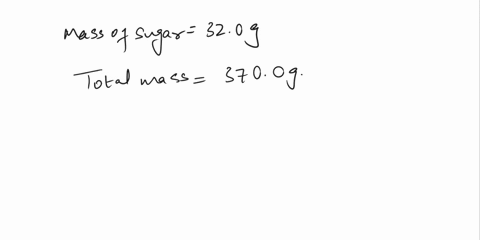 Mass of sugar = 32.0 g
Total mass = 370.0g.